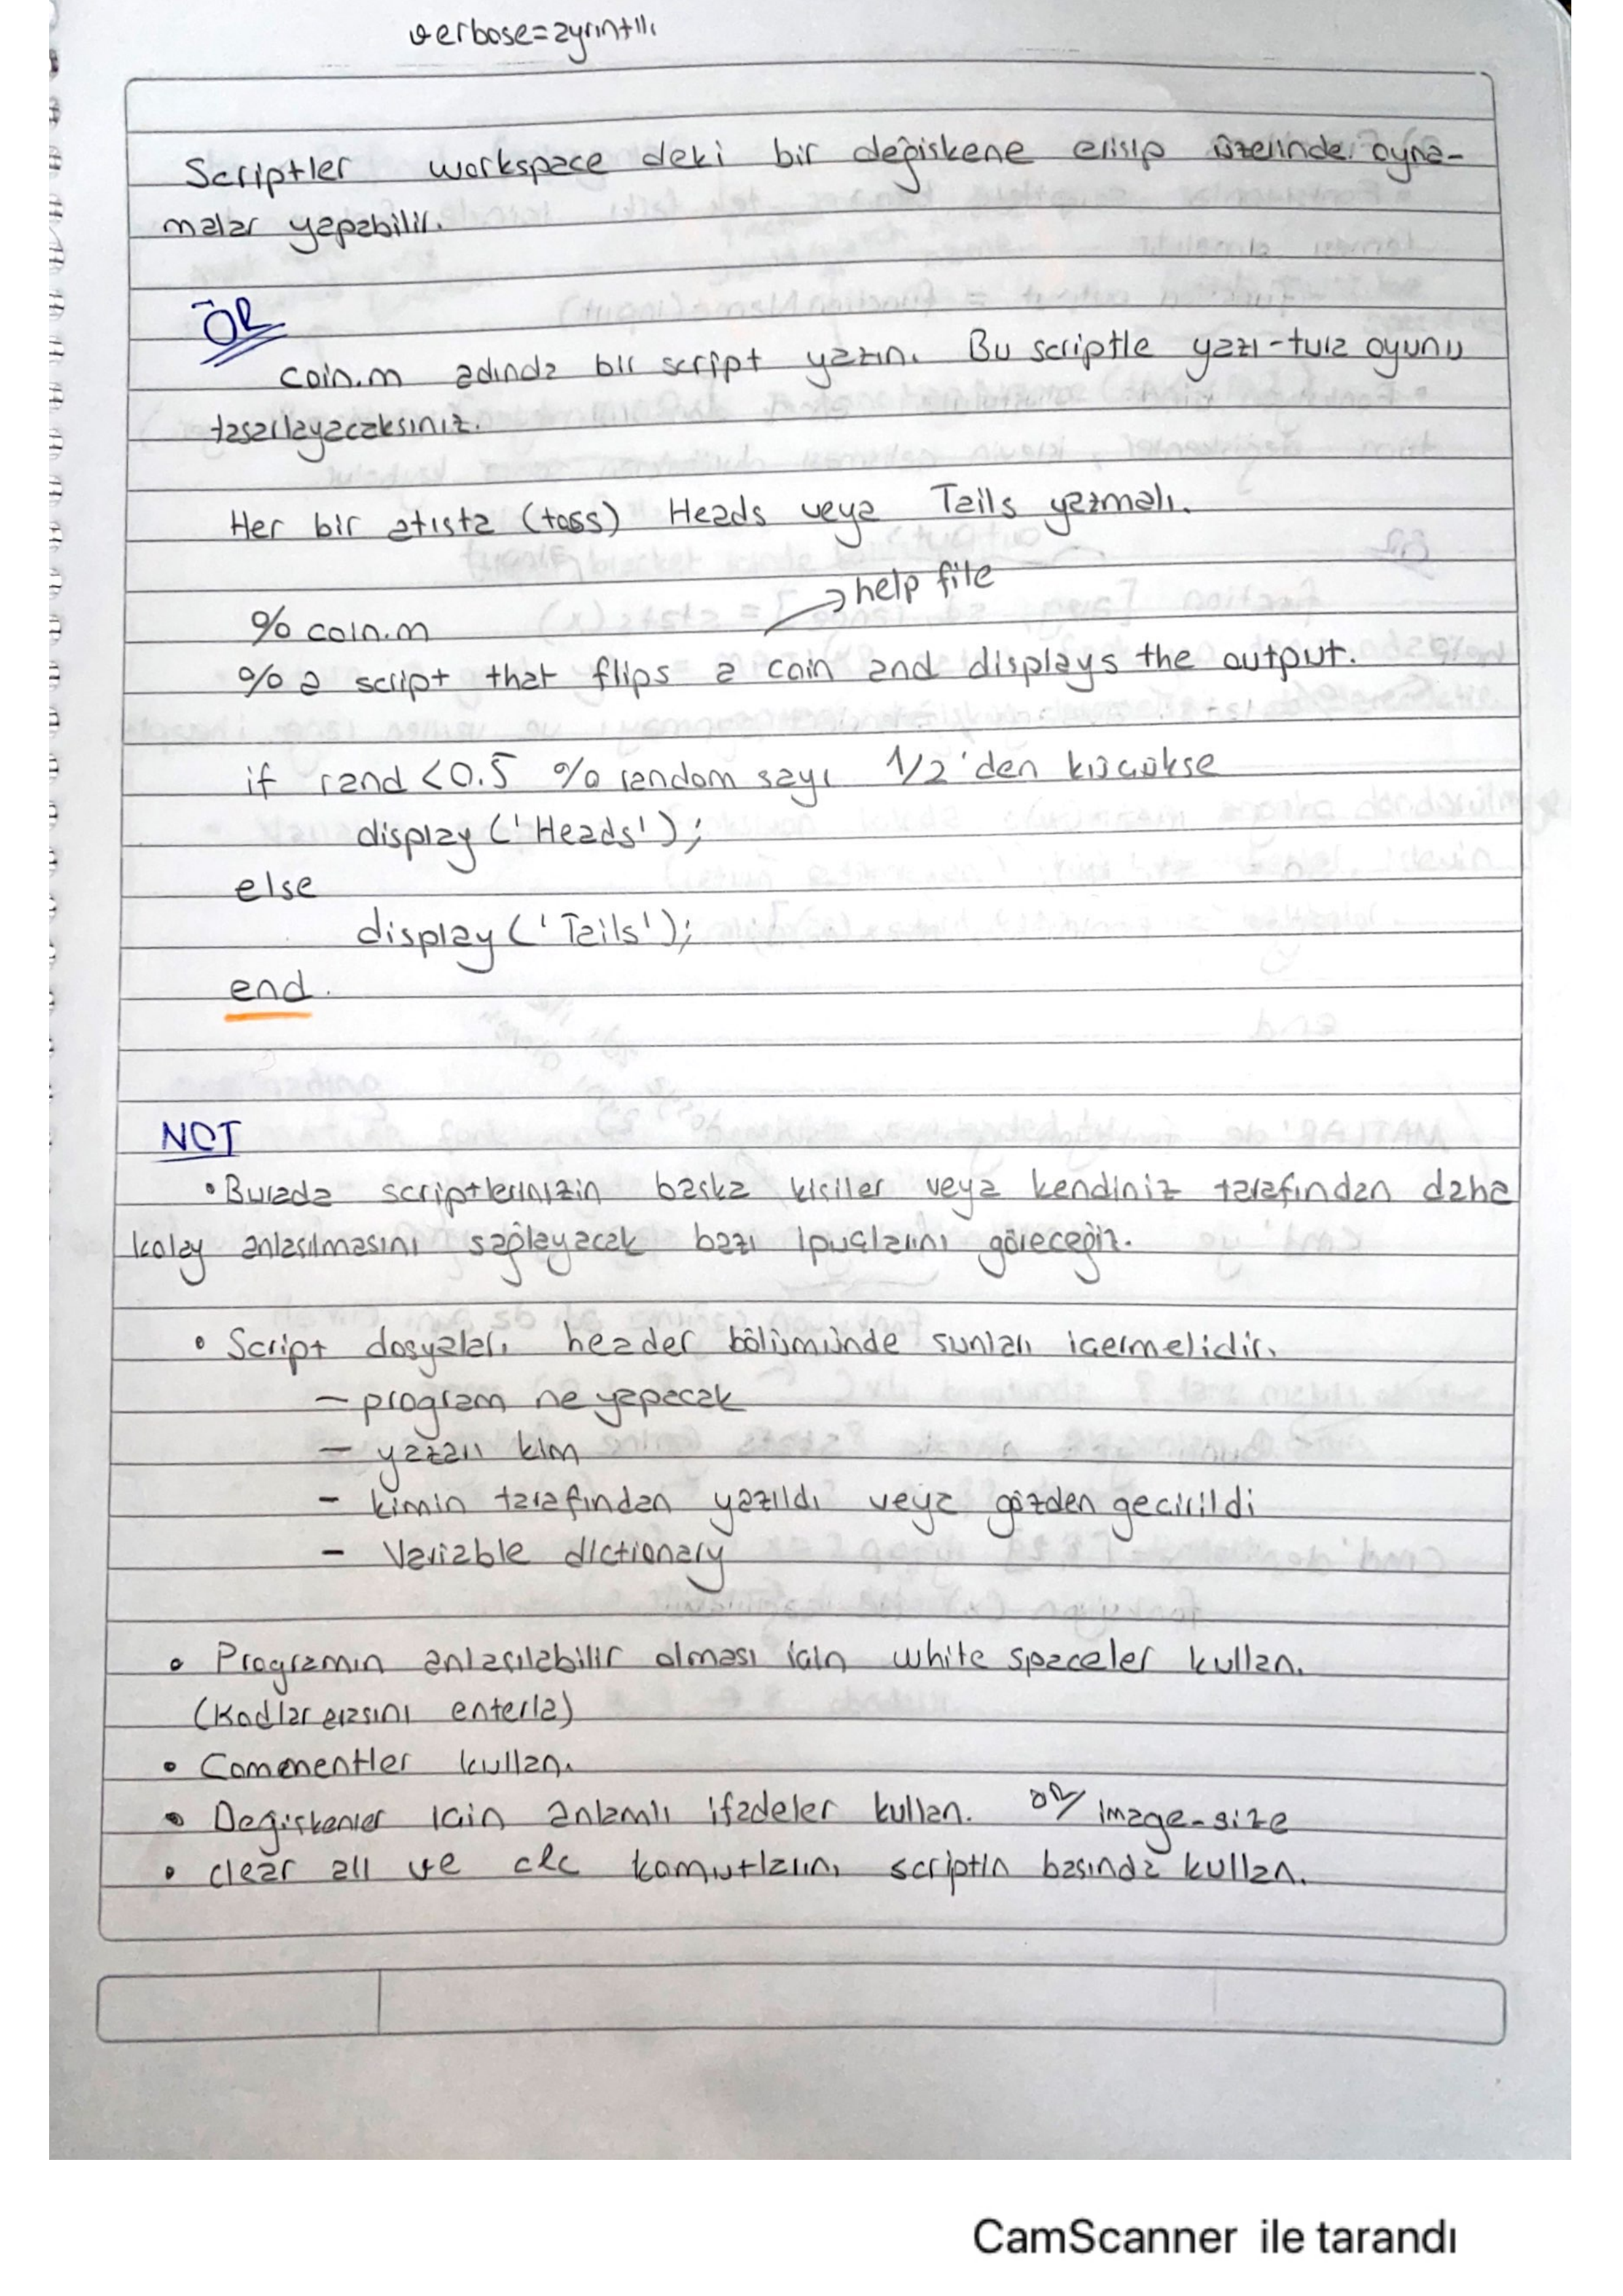 verbose=ayrıntılı
Scriptler workspace deki bir değiskene erisip üzerinde oyna-
malar yapabilir.
ÖR
coin.m adında bir script yazın. Bu scriptle yazı-tura oyunu
tasarlayacaksınız.
Her bir atısta (toss) Heads veya Tails yazmalı.
→ help file
% coin.m
% a script that flips a coin and displays the output.
if rand <0.5 % random sayı 1/2'den küçükse
display ('Heads');
else
display ('Tails');
end.
NOT
• Burada scriptlerinizin baska kişiler veya kendiniz tarafından daha
kolay anlasılmasını sağlayacak bazı ipuçlarını göreceğiz.
• Script dosyaları header bölümünde sunları icermelidir.
– program ne yapacak
– yazarı kim
– kimin tarafından yazıldı veya gözden gecirildi
– Variable dictionary
• Programın anlasılabilir olması icin white spaceler kullan.
(Kodlar arasını enterla)
• Commentler kullan.
• Değiskenler icin anlamlı ifadeler kullan. ÖR/ image-size
• clear all ve clc komutlarını scriptin basında kullan.
CamScanner ile tarandı